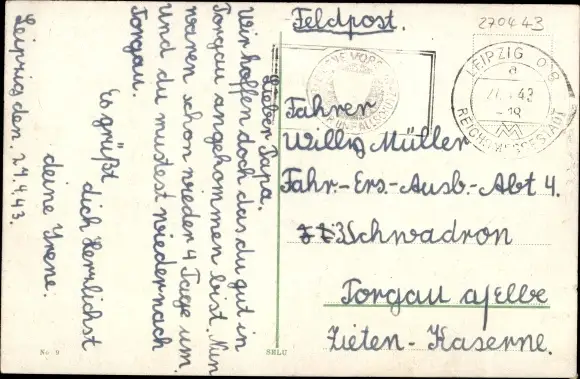 Leipzig den. 27.4.43.
Lieber Papa.
Wir hoffen doch das du gut in
Torgau angekommen bist. Nun
waren schon wieder 4 Tage um.
Und du mustest wieder nach
Torgau.
Es grüßt
dich Herzlichst
deine Irene.
Feldpost.
270443
LEIPZIG O18
a
-19
REICHSMESSESTADT
Fahrer
Willy Müller
Fahr.-Ers.-Ausb.-Abt 4.
3 Schwadron
Torgau a/Elbe
Zieten-Kaserne.
No 9
SELU